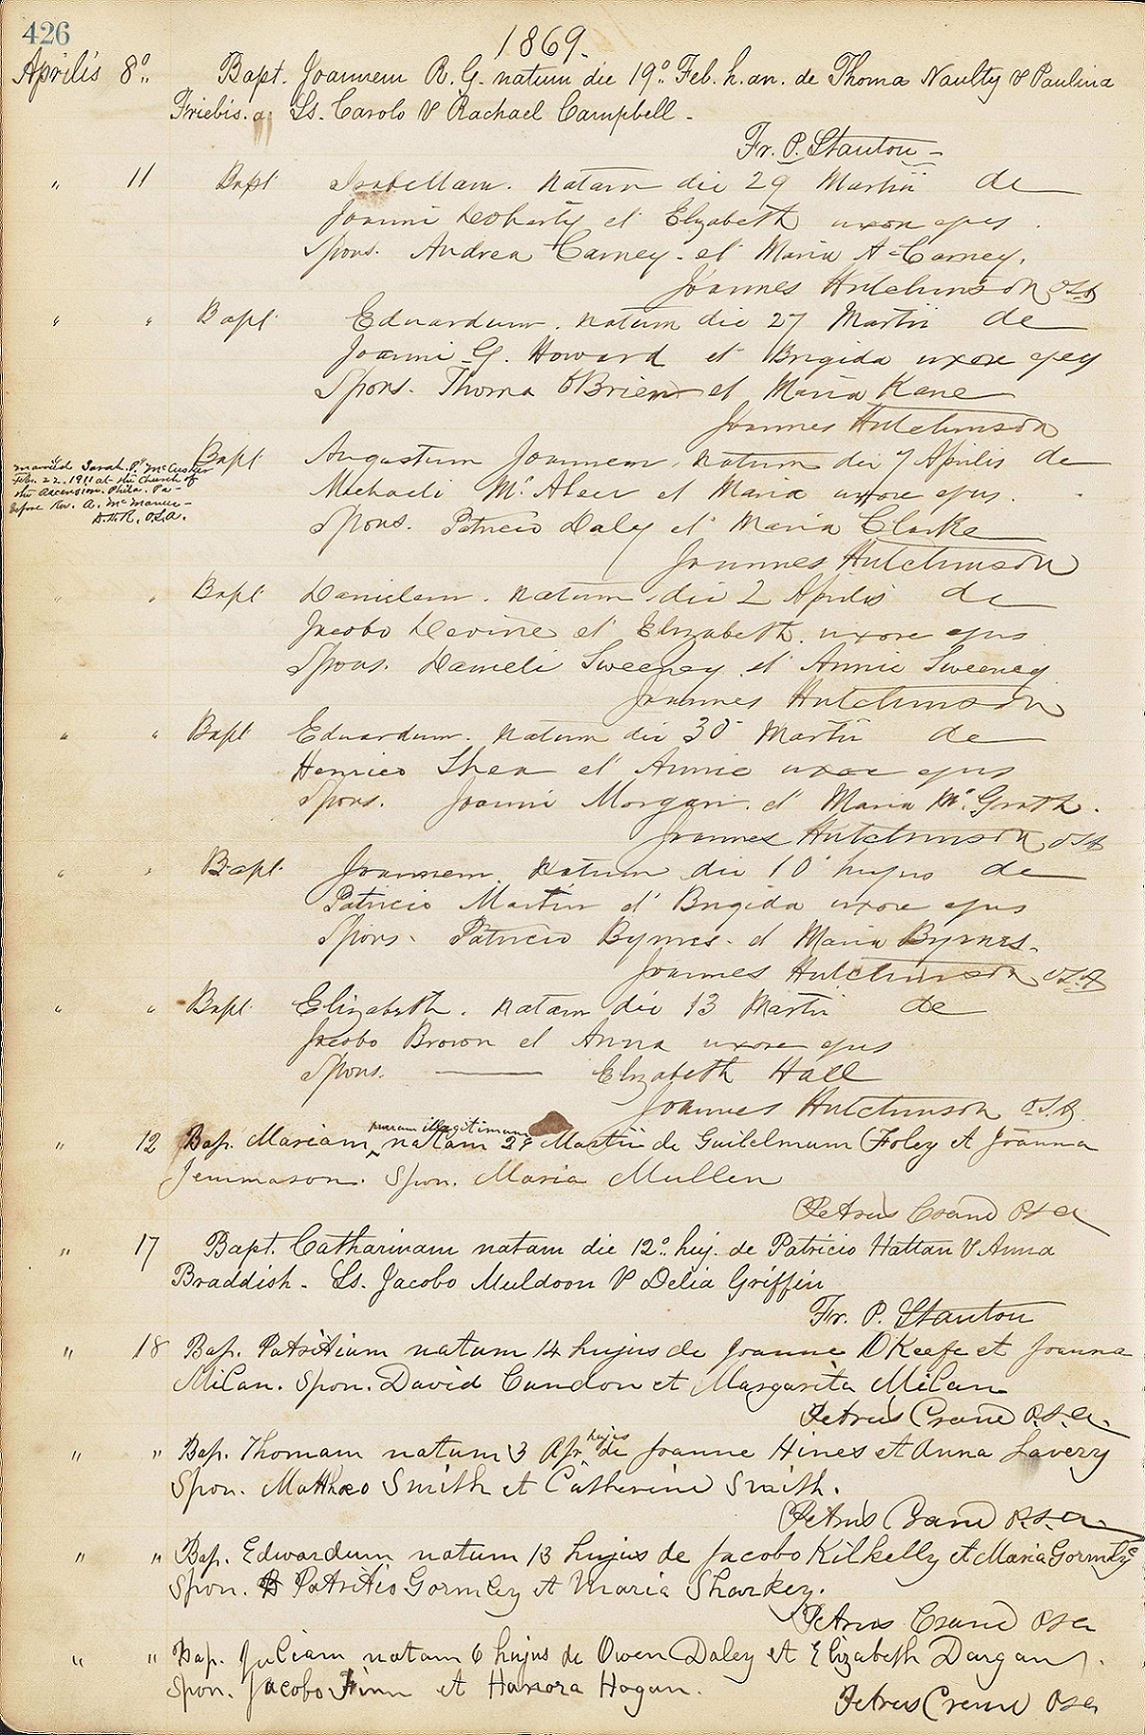 426
1869.
Aprilis 8º.. Bapt. Joannem R. G. natum die 19º. Feb. h. an. de Thoma Naulty & Paulina
Friebis. a. Ss. Carolo & Rachael Campbell -
Fr. P. Stanton -
" 11 Bapt Isabellam. natam die 29 Martii de
Joanni Doherty et Elizabeth uxore ejus.
Spons. Andrea Carney - et Maria A Carney,
Joannes Hutchinson OSA
" " Bapt Eduardum. natum die 27 Martii de
Joanni G. Howard et Brigida uxore ejus
Spons. Thoma O'Brien et Maria Kane
Joannes Hutchinson
Bapt Augustum Joannem natum die 7 Aprilis de
married Sarah. P. McCusker
Feb. 22. 1911 at the Church of
the Ascension. Phila. Pa -
before Rev. A. McManus -
O.S.A.
Michaeli Mc Aleer et Maria uxore ejus.
Spons. Patricio Daly et Maria Clarke
Joannes Hutchinson
" " Bapt Danielem. natum die 2 Aprilis de
Jacobo Devine et Elizabeth. uxore ejus
Spons. Danieli Sweeney et Annie Sweeney
Joannes Hutchinson
" " Bapt Eduardum. natum die 30 Martii de
Henrico Shea et Annie uxore ejus
Spons. Joanni Morgan. et Maria Mc Grath.
Joannes Hutchinson OSA
" " Bapt. Joannem. natum die 10 hujus de
Patricio Martin et Brigida uxore ejus
Spons. Patricio Byrnes. et Maria Byrnes.
Joannes Hutchinson O.S.A
" " Bapt Elizabeth. natam die 13 Martii de
Jacobo Brown et Anna uxore ejus
Spons. ——— Elizabeth Hall
Joannes Hutchinson O.S.A.
illegitimam
" 12 Bap. Mariam ‸ natam 29 Martii de Guilelmum Foley et Joanna
Jemmason. Spon. Maria Mullen
Petrus Crane OSA
" 17 Bapt. Catharinam natam die 12º. huj. de Patricio Hattan & Anna
Braddish - Ss. Jacobo Muldoon & Delia Griffin
Fr. P. Stanton
" 18 Bap. Patritium natum 14 hujus de Joanne OKeefe et Joanna
Milan. Spon. David Condon et Margarita Milan
Petrus Crane O.S.A.
hujus
" " Bap. Thomam natum 3 Apr. de Joanne Hines et Anna Lavery
Spon. Mattheo Smith et Catherine Smith.
Petrus Crane O.S.A.
" " Bap. Edwardum natum 13 hujus de Jacobo Kilkelly et Maria Gormley
Spon. Patritio Gormley et Maria Sharkey.
Petrus Crane OSA
" " Bap. Juliam natam 6 hujus de Owen Daley et Elizabeth Dargan.
Spon. Jacobo Finn et Hanora Hogan.
Petrus Crane OSA